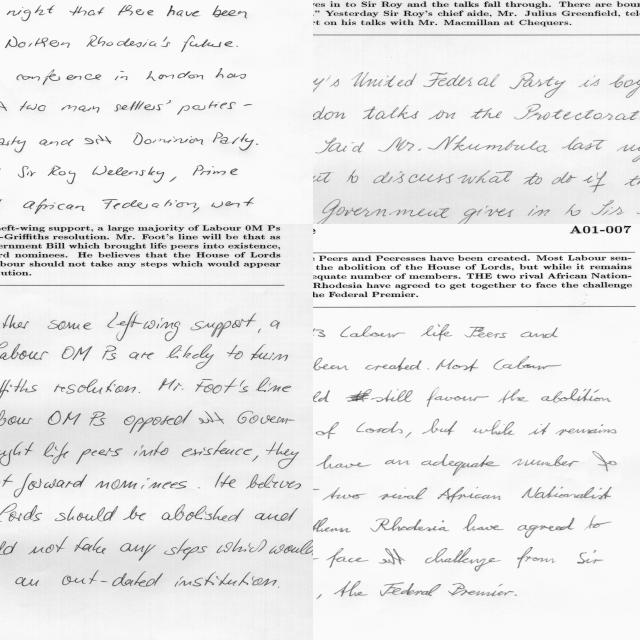 night that there have been
Northern Rhodesia's future.
conference in London has
two main settlers' parties -
and Dominion Party.
Sir Roy Welensky, Prime
African Federation, went
es in to Sir Roy and the talks fall through. There are bou
." Yesterday Sir Roy's chief aide, Mr. Julius Greenfield, tel
rt on his talks with Mr. Macmillan at Chequers.
y's United Federal Party is boy
don talks on the Protectorat
Said Mr. Nkumbula last
to discuss what to do if
Government gives in to Sir
eft-wing support, a large majority of Labour 0M Ps
-Griffiths resolution. Mr. Foot's line will be that as
ernment Bill which brought life peers into existence,
rd nominees. He believes that the House of Lords
bour should not take any steps which would appear
ution.
ther some left-wing support, a
abour OM Ps are likely to turn
ffiths resolution. Mr. Foot's line
bour OM Ps opposed Govern-
ught life peers into existence, they
t forward nominees. He believes
Lords should be abolished and
ld not take any steps which would
an out-dated institution.
A01-007
Peers and Peeresses have been created. Most Labour sen-
the abolition of the House of Lords, but while it remains
equate number of members. THE two rival African Nation-
Rhodesia have agreed to get together to face the challenge
he Federal Premier.
's Labour life Peers and
been created. Most Labour
ld still favour the abolition
of Lords, but while it remains
have an adequate number
two rival African Nationalist
thern Rhodesia have agreed to
face challenge from Sir
, the Federal Premier.